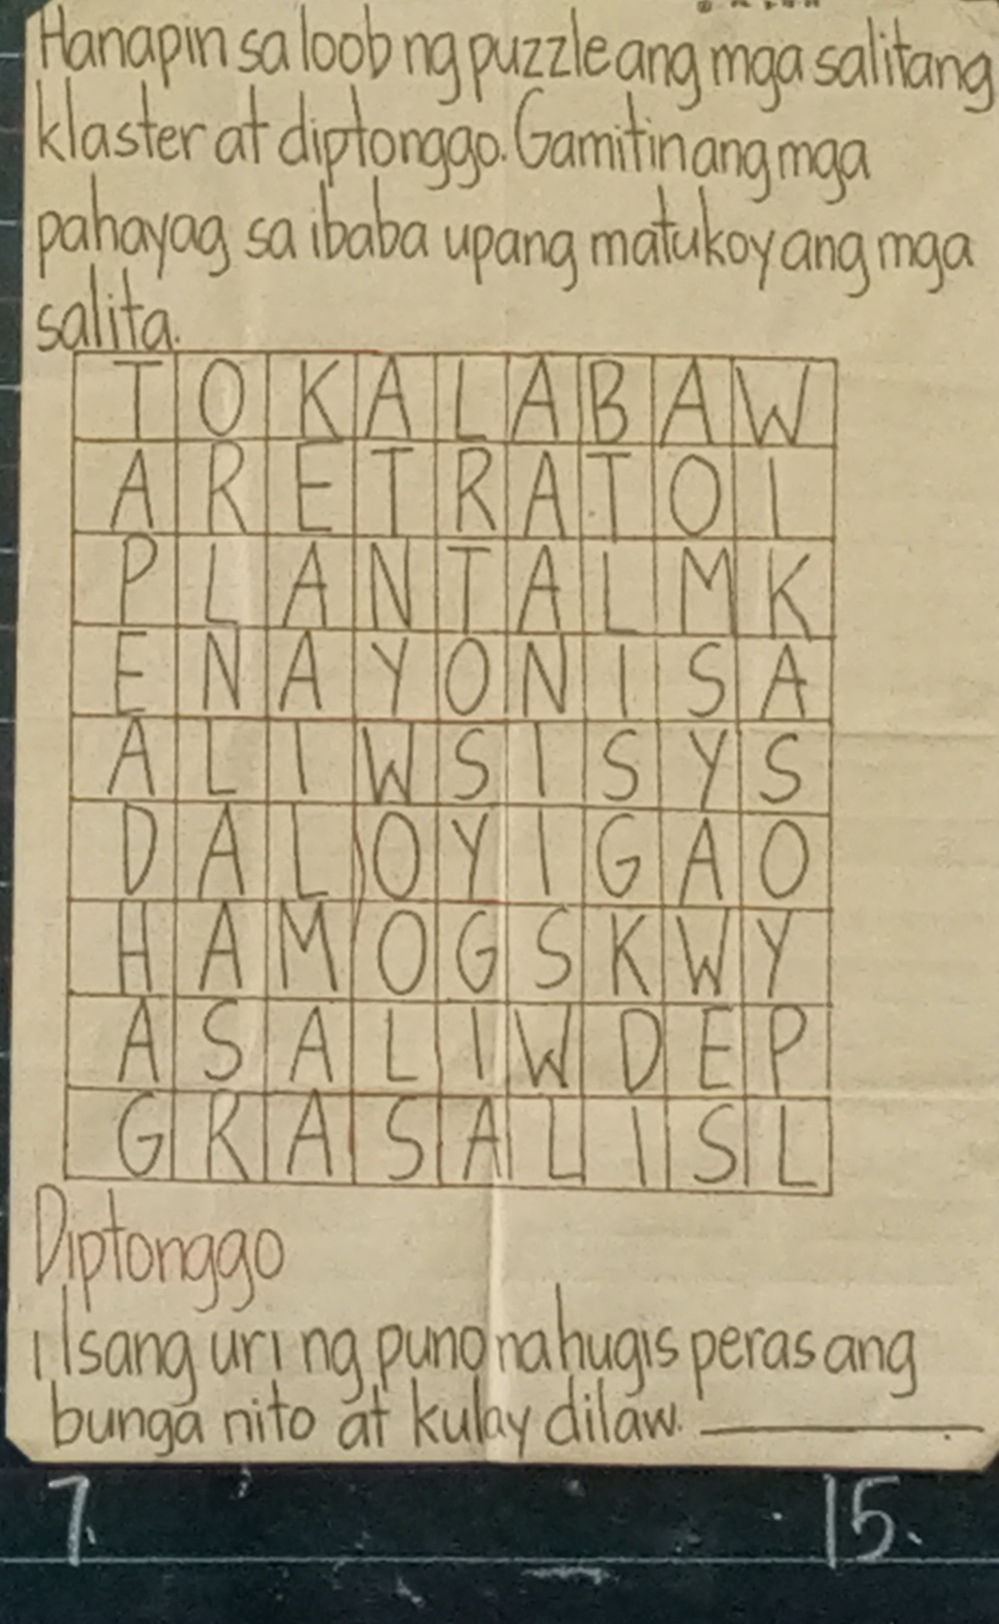 Hanapin sa loob ng puzzle ang mga salitang
klaster at diptonggo. Gamitin ang mga
pahayag sa ibaba upang matukoy ang mga
salita.
T O K A L A B A W
A R E T R A T O I
P L A N T A L M K
E N A Y O N I S A
A L I W S I S Y S
D A L O Y I G A O
H A M O G S K W Y
A S A L I W D E P
G R A S A L I S L
Diptonggo
1 Isang uri ng puno na hugis peras ang
bunga nito at kulay dilaw. ____________.
7. 15.